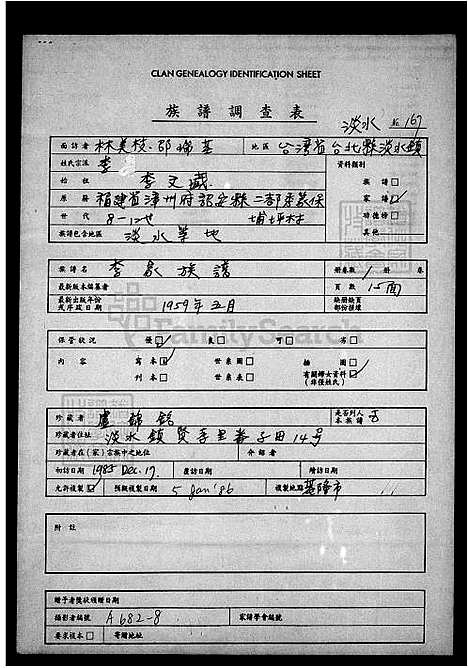 CLAN GENEALOGY IDENTIFICATION SHEET
族譜調查表
淡水 167
面訪者 林美枝.邵瑞基 地區 台灣省台北縣淡水鎮
姓氏宗派 李 資料類別
始祖 李文 族譜□
原籍 福建省漳州府詔安縣二都 家譜☑
世代 8-12世 埔坪村 功德榜□
族譜包含地區 淡水等地 其他
族譜名 李家族譜 册卷數 1 册 卷
最新版本編纂者 頁數 15面
最新出版年份或序跋日期 1959年五月 缺册缺頁部份推條
保管狀況 優☑ 良□ 可□ 劣□
內容 寫本☑ 世系圖□ 插圖□
刊本□ 世系表□ 有關婦女資料☑ (非僅姓氏)
珍藏者 盧錦銘 是否列入本族譜 否
珍藏者住址 淡水鎮賢孝里番子田14号
珍藏者在(家)宗族中之地位 介紹者
初訪日期 1985 Dec. 17 覆訪日期 續訪日期
允許複製☑ 預期複製日期 5 Jan '86 複製地點 基隆市
附註
贈予者獎狀頒贈日期
攝影者編號 A682-8 家譜學會編號
要求複本□ 寄贈日期
FamilySearch